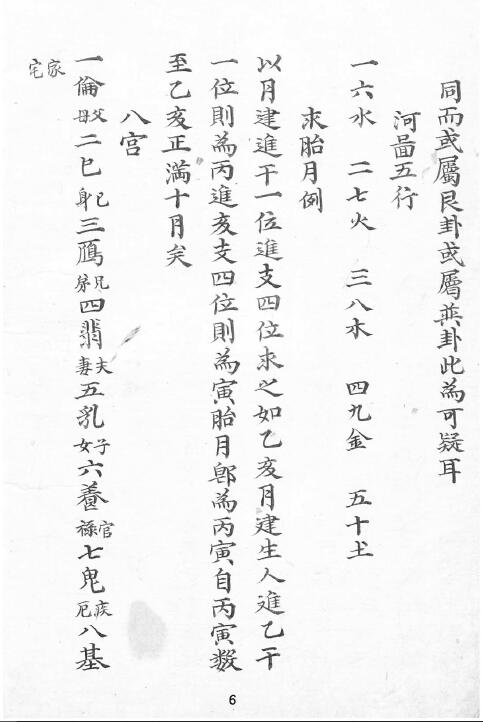 同而或屬艮卦或屬巽卦此為可疑耳
河啚五行
一六水 二七火 三八木 四九金 五十土
求胎月例
以月建進干一位進支四位求之如乙亥月建生人進乙干
一位則為丙進亥支四位則為寅胎月即為丙寅自丙寅數
至乙亥正滿十月矣
八宮
一倫父母二巳己身三鴈兄弟四翡夫妻五乳子女六養官祿七鬼疾厄八基
家宅
6